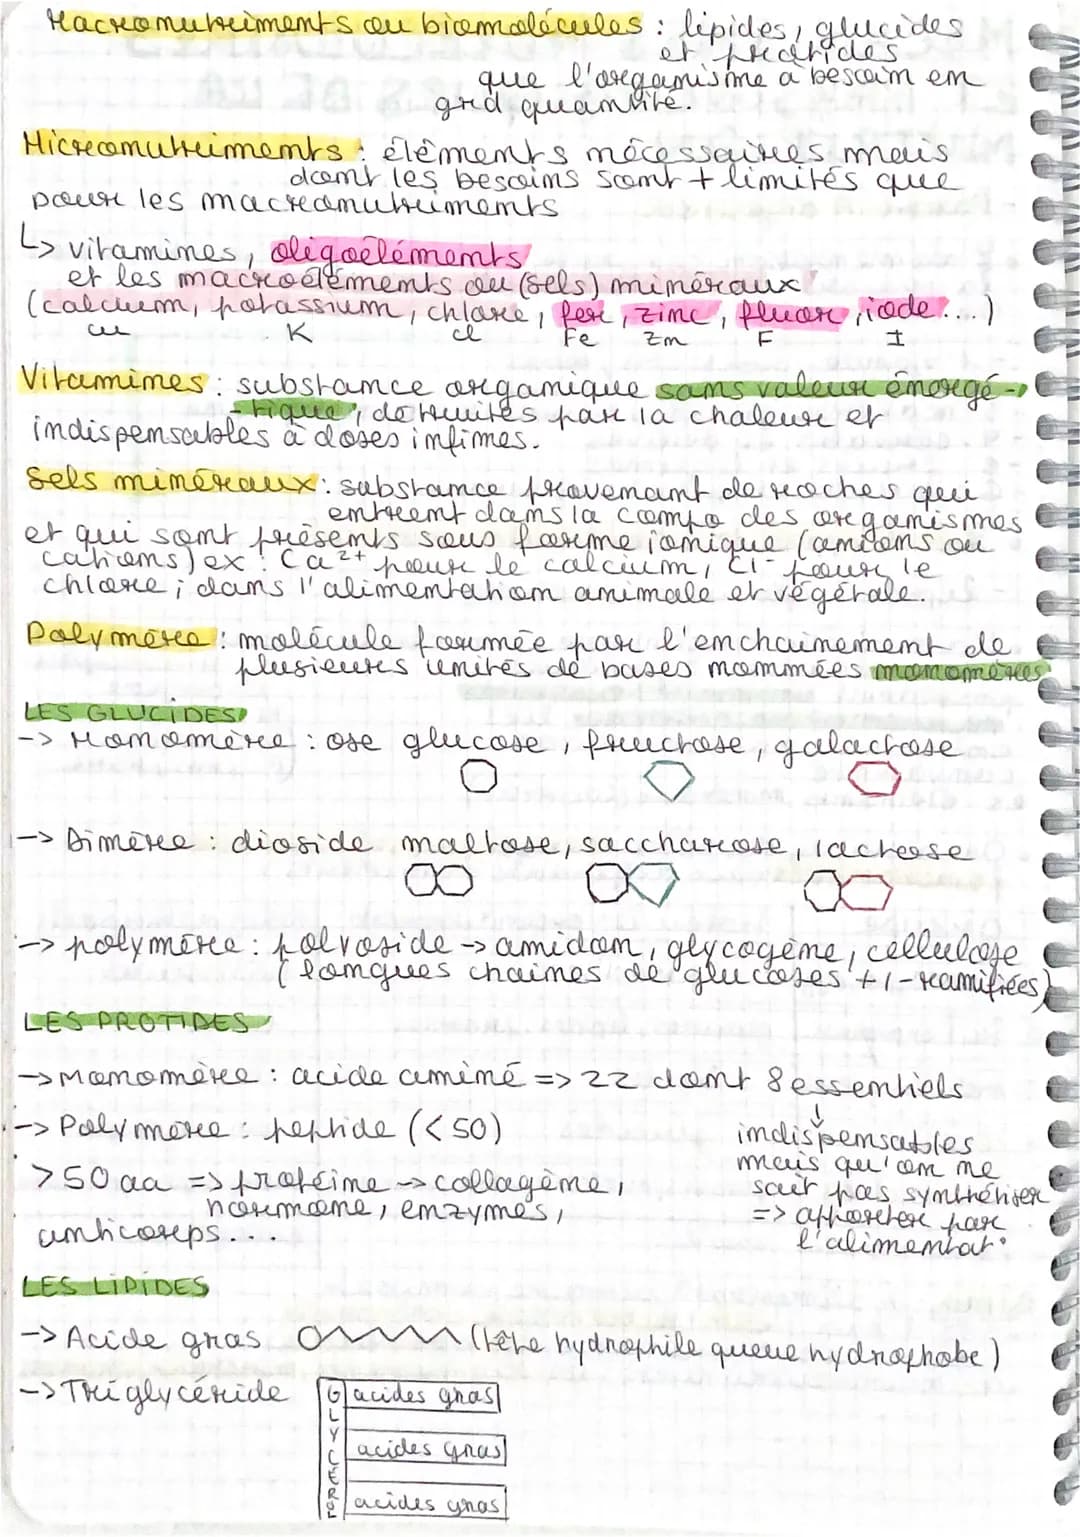 Macronutriments ou biomolécules : lipides, glucides
et protides
que l'organisme a besoin en
grd quantité.
Micronutriments : éléments nécessaires mais
dont les besoins sont + limités que
pour les macronutriments
↳ vitamines, oligoéléments
et les macroéléments ou (sels) minéraux
(calcium, potassium, chlore, fer, zinc, fluor, iode...)
K Cl Fe Zn F I
Vitamines : substance organique sans valeur énergé-
-tique, détruites par la chaleur et
indispensables à doses infimes.
Sels minéraux : substance provenant de roches qui
entrent dans la compo des organismes
et qui sont présents sous forme ionique (anions ou
cations) ex : Ca²⁺ pour le calcium, Cl⁻ pour le
chlore ; dans l'alimentation animale et végétale.
Polymère : molécule formée par l'enchainement de
plusieurs unités de bases nommées monomères
LES GLUCIDES
-> Monomère : ose glucose, fructose, galactose
-> Dimère : dioside maltose, saccharose, lactose
-> polymère : polyoside -> amidon, glycogène, cellulose
(longues chaines de glucoses +/- ramifiées)
LES PROTIDES
-> Monomère : acide aminé => 22 dont 8 essentiels
-> Polymère : peptide (< 50)
indispensables
mais qu'on ne
sait pas synthétiser
=> apporter par
l'alimentat°
> 50 aa => protéine -> collagène,
hormone, enzymes,
anticorps...
LES LIPIDES
-> Acide gras (tête hydrophile queue hydrophobe)
-> Triglycéride
GLYCÉROL
acides gras
acides gras
acides gras